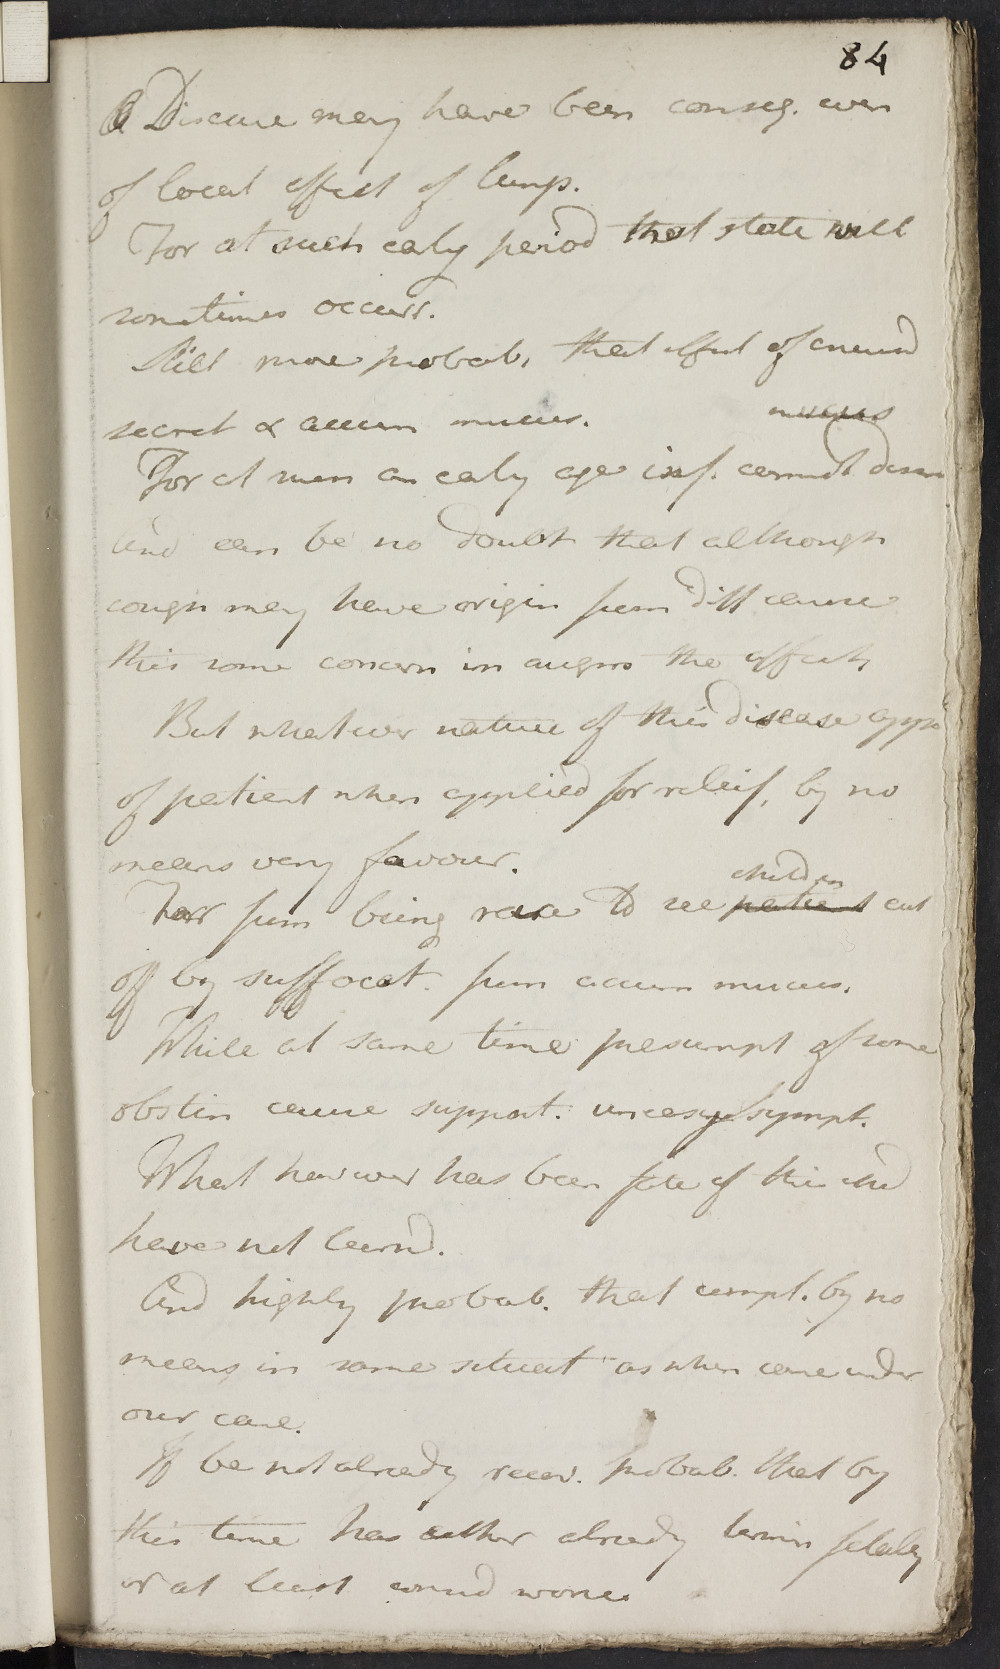 84
Disease may have been conseq. even
of local effect of lungs.
For at such early period that state will
sometimes occurr.
Still more probab. that effect of
secret & accum mucus. mucus
For at such an early age inf. cannot
And can be no doubt that although
cough may have origin from diff cause
this some concern in augm the effect,
But whatever nature of this disease appe
of patient when applied for releif, by no
means very favour.
For from being rare to see patient children cut
off by suffocat. from accum mucus.
While at same time presumpt of some
obstin cause support. uneasy sympt.
What however has been fate of this
have not learnd.
And highly probab. that compl. by no
means in same situat as when came under
our care.
If be not already recov. probab. that by
this time has either already termin fatally
or at least worse